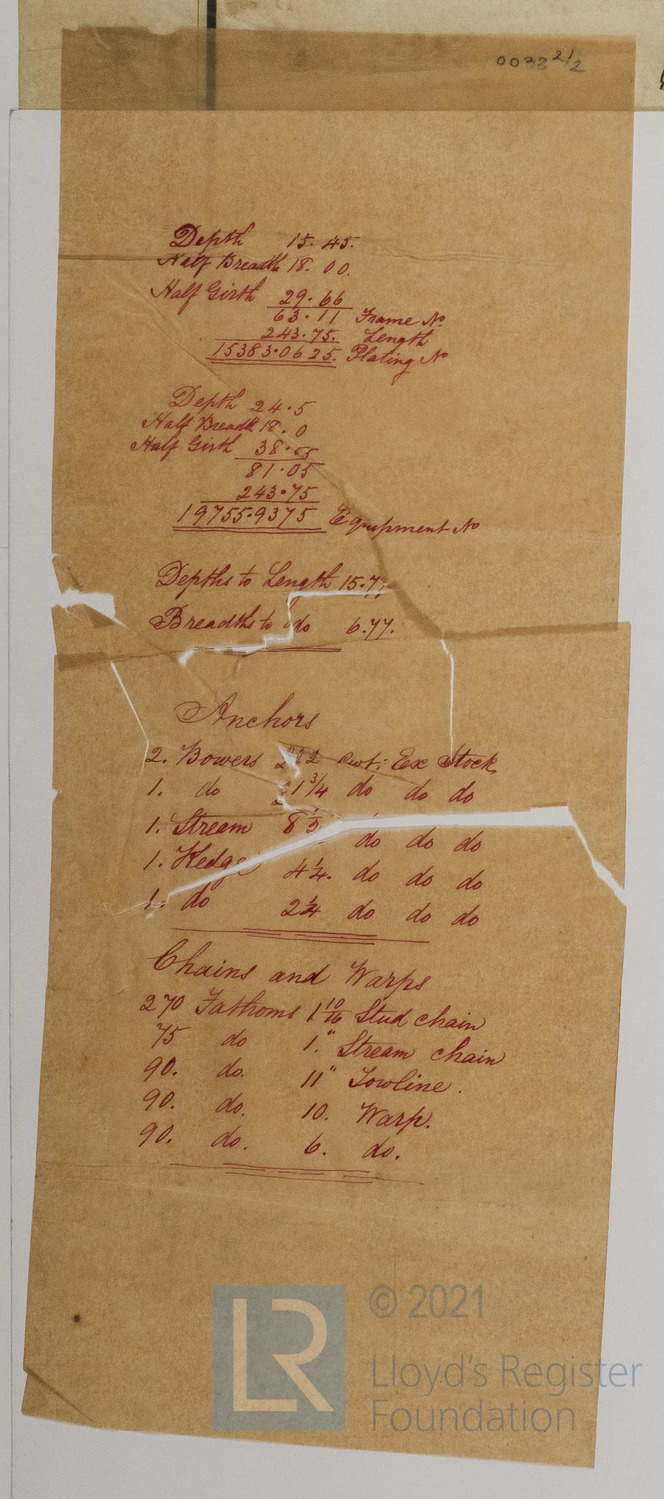 0033 2/2
Depth 15.45.
Half Breadth 18.00.
Half Girth 29.66
63.11 Frame No
243.75. Length
15383.0625. Plating No
Depth 24.5
Half Breadth 18.0
Half Girth 38.55
81.05
243.75
19755.9375 Equipment No
Depths to Length 15.77
Breadths to do 6.77.
Anchors
2. Bowers Cwt: Ex Stock
1. do 21 3/4 do do do
1. Stream 8 1/2 do do do
1. Kedge 4 1/4. do do do
1. do 2 1/4 do do do
Chains and Warps
270 Fathoms 1 10/16 Stud chain
75 do 1." Stream chain
90. do. 11" Towline.
90. do. 10. Warp.
90. do. 6. do.
© 2021
LR Lloyd's Register
Foundation